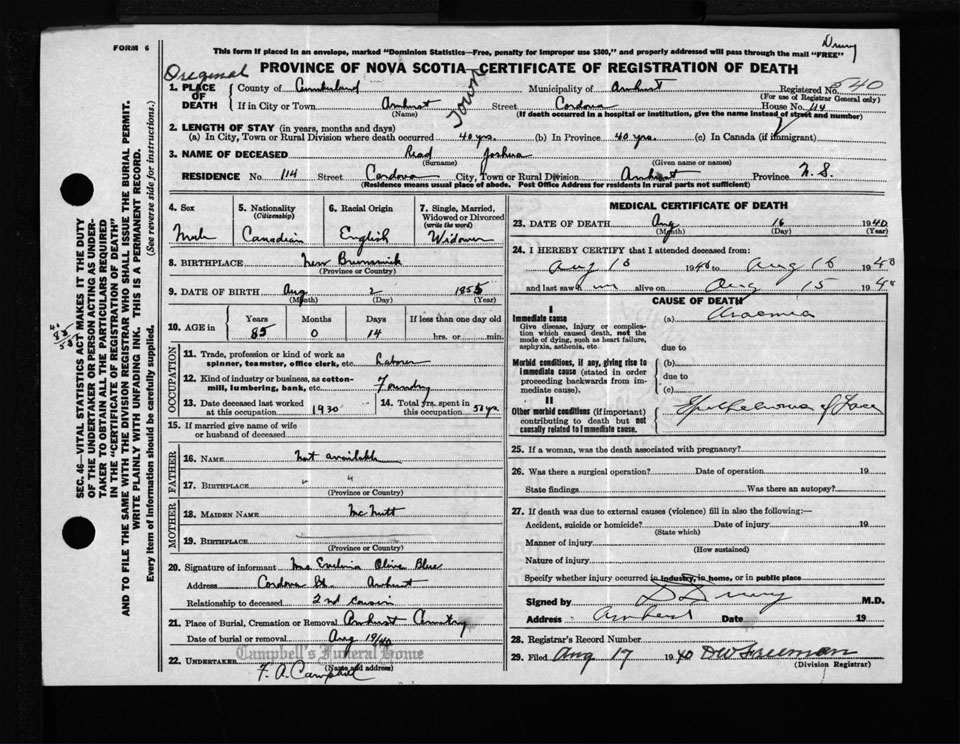 Drury
FORM 6
This form if placed in an envelope, marked "Dominion Statistics—Free, penalty for improper use $300," and properly addressed will pass through the mail "FREE"
Original
PROVINCE OF NOVA SCOTIA—CERTIFICATE OF REGISTRATION OF DEATH
Town
1. PLACE OF DEATH
County of Cumberland Municipality of Amherst Registered No. 540
(For use of Registrar General only)
If in City or Town Amherst Street Cordova House No. 114
(Name) (If death occurred in a hospital or institution, give the name instead of street and number)
2. LENGTH OF STAY (in years, months and days)
(a) In City, Town or Rural Division where death occurred 40 yrs. (b) In Province 40 yrs. (c) In Canada (if immigrant)
3. NAME OF DECEASED Read Joshua
(Surname) (Given name or names)
RESIDENCE No. 114 Street Cordova City, Town or Rural Division Amherst Province N. S.
(Residence means usual place of abode. Post Office Address for residents in rural parts not sufficient)
SEC. 46—VITAL STATISTICS ACT MAKES IT THE DUTY
OF THE UNDERTAKER OR PERSON ACTING AS UNDER-
TAKER TO OBTAIN ALL THE PARTICULARS REQUIRED
IN THE "CERTIFICATE OF REGISTRATION OF DEATH"
AND TO FILE THE SAME WITH THE DIVISION REGISTRAR WHO SHALL ISSUE THE BURIAL PERMIT.
WRITE PLAINLY WITH UNFADING INK. THIS IS A PERMANENT RECORD.
Every item of information should be carefully supplied. (See reverse side for instructions.)
4. Sex
Male
5. Nationality
(Citizenship)
Canadian
6. Racial Origin
English
7. Single, Married,
Widowed or Divorced
(write the word)
Widower
8. BIRTHPLACE New Brunswick
(Province or Country)
9. DATE OF BIRTH Aug 2 1855
(Month) (Day) (Year)
10. AGE in
Years Months Days If less than one day old
85 0 14 hrs. or min.
OCCUPATION
11. Trade, profession or kind of work as
spinner, teamster, office clerk, etc. Laborer
12. Kind of industry or business, as cotton-
mill, lumbering, bank, etc. Foundry
13. Date deceased last worked
at this occupation 1930
14. Total yrs. spent in
this occupation 50 yrs
15. If married give name of wife
or husband of deceased
FATHER
16. NAME Not available
17. BIRTHPLACE " "
(Province or Country)
MOTHER
18. MAIDEN NAME McNutt
19. BIRTHPLACE
(Province or Country)
20. Signature of informant Mrs Olive Blue
Address Cordova St. Amherst
Relationship to deceased 2nd cousin
21. Place of Burial, Cremation or Removal Amherst
Date of burial or removal Aug 19/40
Campbell's Funeral Home
22. UNDERTAKER F. A. Campbell
(Name and address)
MEDICAL CERTIFICATE OF DEATH
23. DATE OF DEATH Aug 16 1940
(Month) (Day) (Year)
24. I HEREBY CERTIFY that I attended deceased from:
Aug 1940 to Aug 16 1940
and last saw alive on Aug 15 1940
CAUSE OF DEATH
I
Immediate cause
Give disease, injury or complica-
tion which caused death, not the
mode of dying, such as heart failure,
asphyxia, asthenia, etc.
(a) Uraemia
due to
Morbid conditions, if any, giving rise to
immediate cause (stated in order
proceeding backwards from im-
mediate cause).
(b)
due to
(c)
II
Other morbid conditions (if important)
contributing to death but not
causally related to immediate cause.
Epithelioma of Face
25. If a woman, was the death associated with pregnancy?
26. Was there a surgical operation? Date of operation 19
State findings Was there an autopsy?
27. If death was due to external causes (violence) fill in also the following:—
Accident, suicide or homicide? Date of injury 19
(State which)
Manner of injury
(How sustained)
Nature of injury
Specify whether injury occurred in industry, in home, or in public place
Signed by Drury M.D.
Address Amherst Date 19
28. Registrar's Record Number
29. Filed Aug 17 1940 DW Freeman
(Division Registrar)